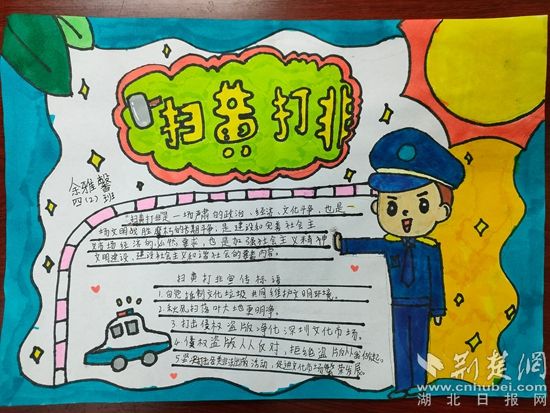 扫黄打非
余雅馨
四(2)班
"扫黄打非是一场严肃的政治、经济、文化斗争,也是一
场文明战胜愚昧的长期斗争,是建设和完善社会主
义市场经济的必然要求,也是加强社会主义精神
文明建设,建设社会主义和谐社会的重要内容。
扫黄打非宣传标语
1.自觉抵制文化垃圾 共同维护文明环境。
2.秋风扫落叶大地更明净。
3.打击侵权盗版净化深圳文化市场。
4.侵权盗版人人反对,拒绝盗版从我做起。
5.坚决打击各类非法出版活动,促进文化市场繁荣发展。
荆楚網
www.cnhubei.com
湖北日报网